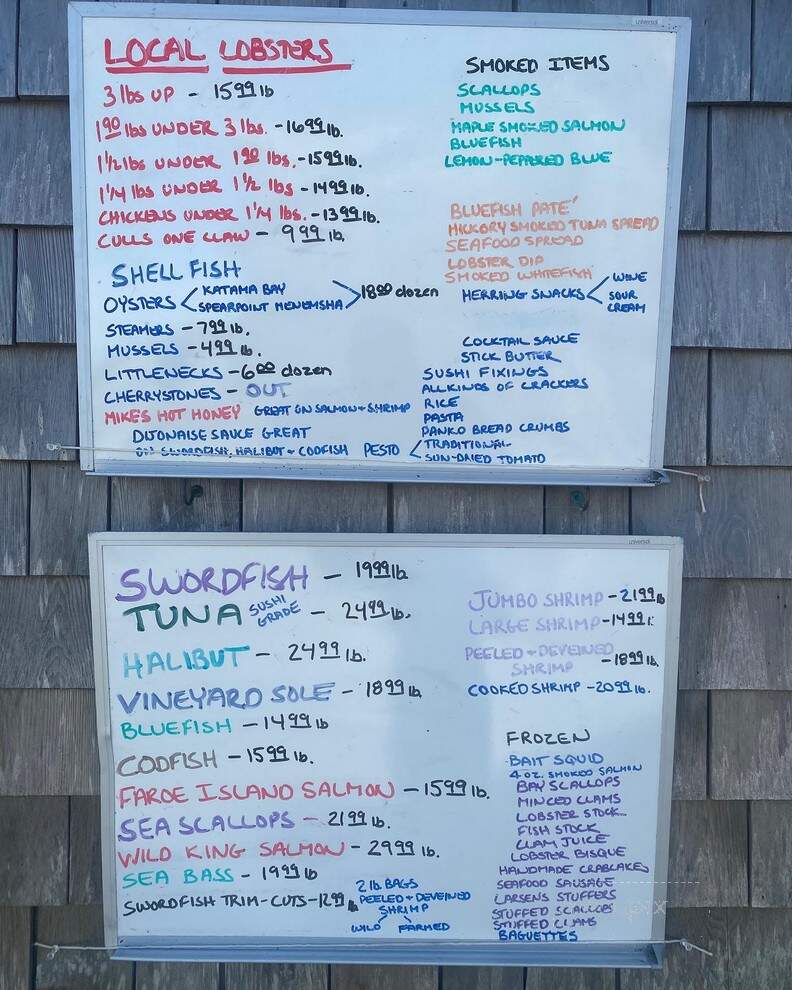 universal
LOCAL LOBSTERS
3 lbs UP - 15 99 lb
1 90 lbs UNDER 3 lbs. - 16 99 lb.
1 1/2 lbs UNDER 1 90 lbs. - 15 99 lb.
1 1/4 lbs UNDER 1 1/2 lbs - 14 99 lb.
CHICKENS UNDER 1 1/4 lbs. - 13 99 lb.
CULLS ONE CLAW - 9 99 lb.
SHELL FISH
OYSTERS < KATAMA BAY
SPEARPOINT MENEMSHA > 18 00 dozen
STEAMERS - 7 99 lb.
MUSSELS - 4 99 lb.
LITTLENECKS - 6 00 dozen
CHERRYSTONES - OUT
MIKES HOT HONEY GREAT ON SALMON + SHRIMP
DIJONAISE SAUCE GREAT
ON SWORDFISH, HALIBUT + CODFISH
SMOKED ITEMS
SCALLOPS
MUSSELS
MAPLE SMOKED SALMON
BLUEFISH
LEMON-PEPPERED BLUE
BLUEFISH PATE'
HICKORY SMOKED TUNA SPREAD
SEAFOOD SPREAD
LOBSTER DIP
SMOKED WHITEFISH
HERRING SNACKS < WINE
SOUR
CREAM
COCKTAIL SAUCE
STICK BUTTER
SUSHI FIXINGS
ALL KINDS OF CRACKERS
RICE
PASTA
PANKO BREAD CRUMBS
PESTO < TRADITIONAL
SUN-DRIED TOMATO
universal
SWORDFISH - 19 99 lb
TUNA SUSHI GRADE - 24 99 lb.
HALIBUT - 24 99 lb.
VINEYARD SOLE - 18 99 lb
BLUEFISH - 14 99 lb
CODFISH - 15 99 lb.
FAROE ISLAND SALMON - 15 99 lb.
SEA SCALLOPS - 21 99 lb.
WILD KING SALMON - 29 99 lb.
SEA BASS - 19 99 lb
SWORDFISH TRIM-CUTS - 12 99 lb
2 lb BAGS
PEELED + DEVEINED
SHRIMP
WILD FARMED
JUMBO SHRIMP - 21 99 lb
LARGE SHRIMP - 14 99
PEELED + DEVEINED
SHRIMP - 18 99 lb.
COOKED SHRIMP - 20 99 lb.
FROZEN
BAIT SQUID
4 OZ. SMOKED SALMON
BAY SCALLOPS
MINCED CLAMS
LOBSTER STOCK
FISH STOCK
CLAM JUICE
LOBSTER BISQUE
HANDMADE CRABCAKES
SEAFOOD SAUSAGE
LARSENS STUFFERS
STUFFED SCALLOPS
STUFFED CLAMS
BAGUETTES